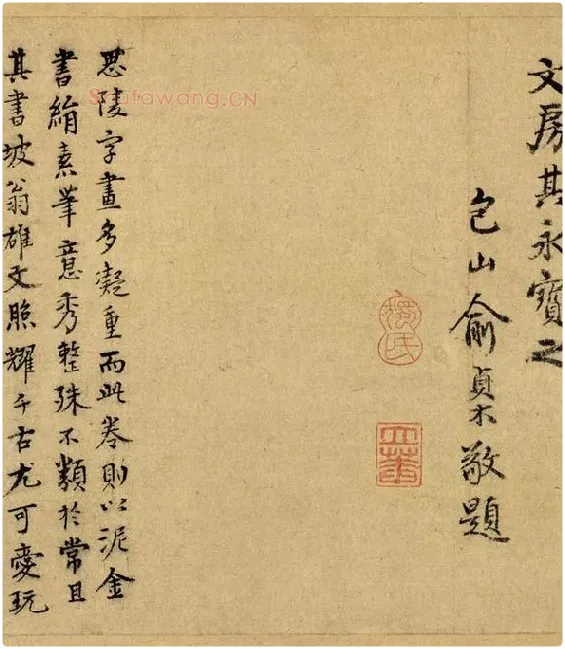 文房其永寶之
包山俞貞木敬題
思陵字畫多凝重而此卷則以泥金
書絹素筆意秀整殊不類於常且
其書坡翁雄文照耀千古尤可愛玩
Shufawang.CN